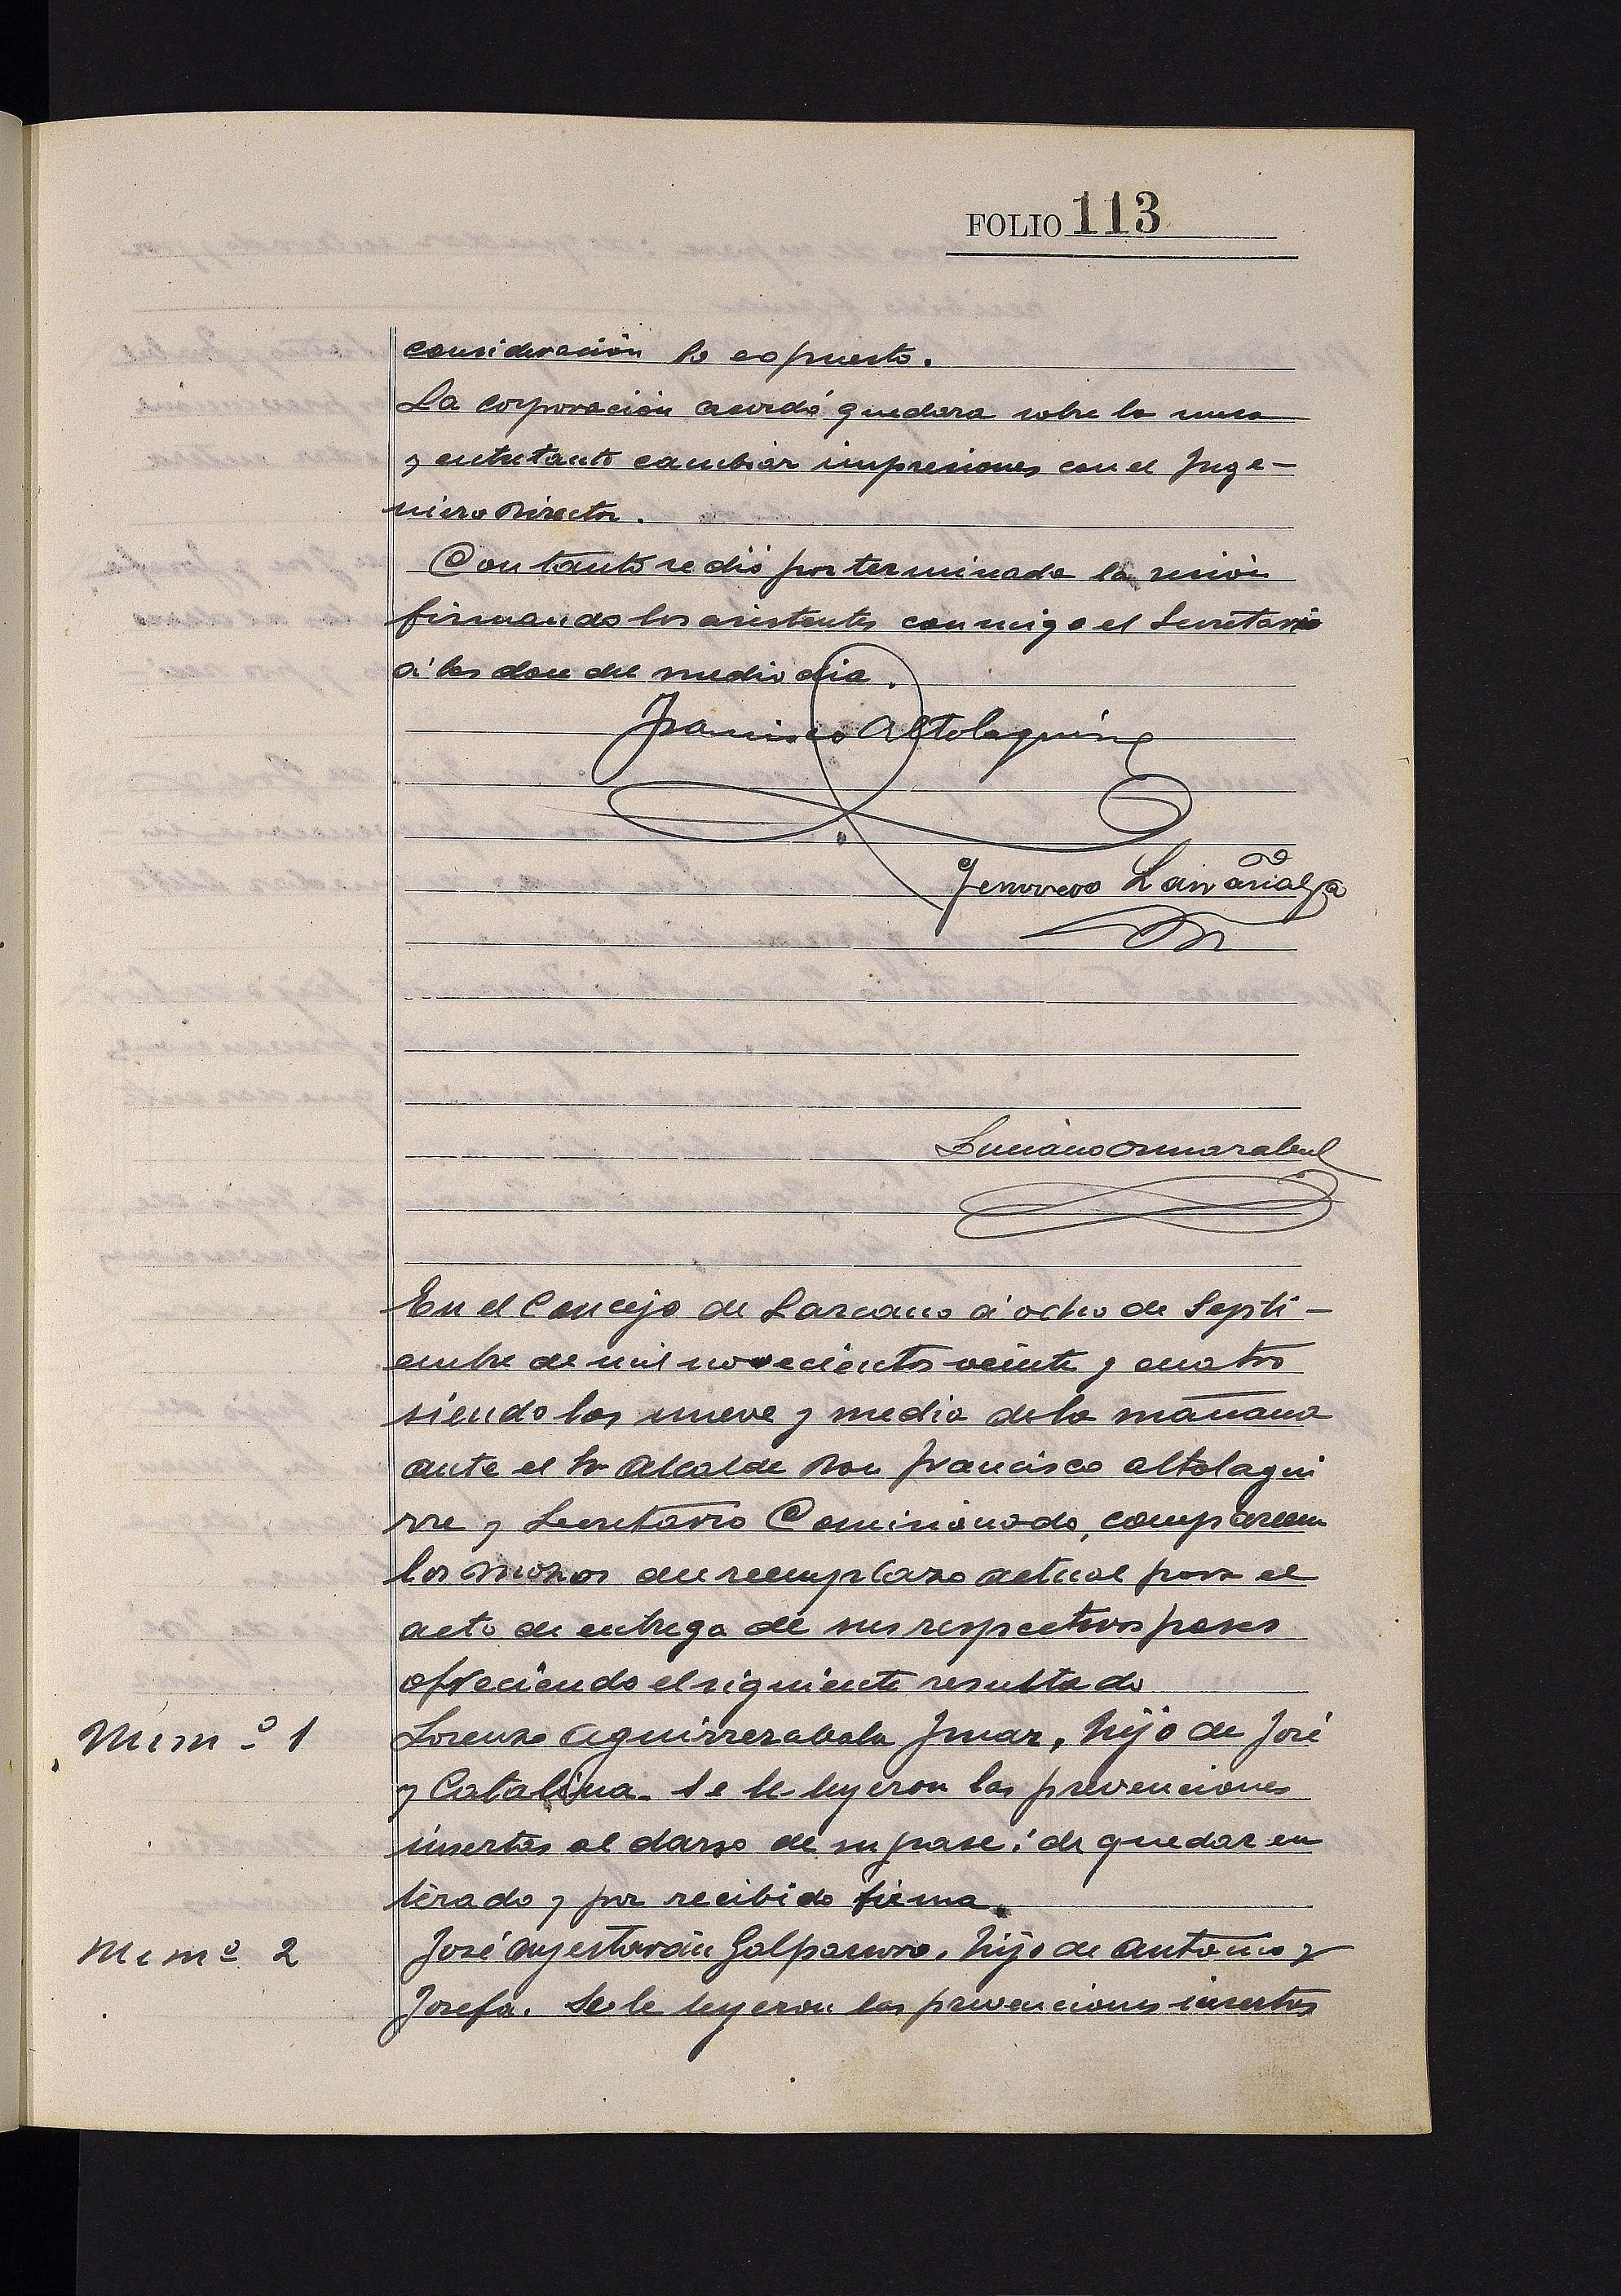 FOLIO 113
consideración lo expuesto.
La corporación acordó quedara sobre la mesa
y entretanto cambiar impresiones con el Inge-
niero Director.
Con tanto se dió por terminada la sesión
firmando los asistentes conmigo el Secretario
á las doce del medio dia.
Francisco Altolaguirre
Larrañaga
Luciano
En el Concejo de Lazcano á ocho de Septi-
embre de mil novecientos veinte y cuatro
siendo las nueve y media de la mañana
ante el Sr Alcalde Don Francisco Altolagui
rre y Secretario Comisionado, comparecen
los mozos del reemplazo actual para el
acto de entrega de sus respectivos pases
ofreciendo el siguiente resultado
Núm º 1 Lorenzo Aguirrezabala Imaz, hijo de José
y Catalina. Se le leyeron las prevenciones
insertas al darso de su pase; de quedar en
terado y por recibido firma.
Núm º 2 José Ayestarán Galparsoro, hijo de Antonio y
Josefa. Se le leyeron las prevenciones insertas